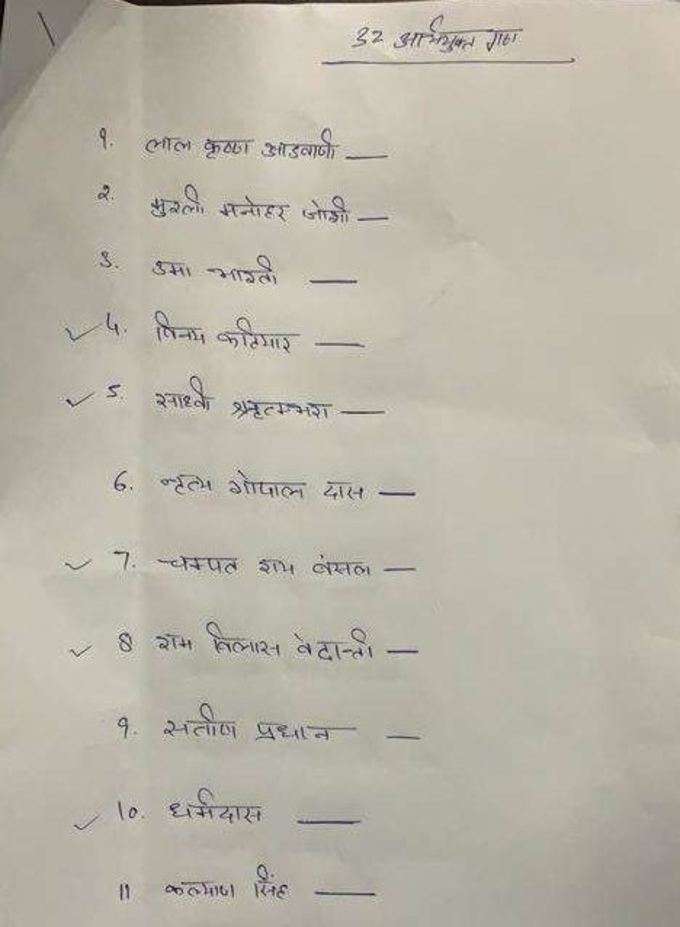 32 अभियुक्त गण
१. लाल कृष्ण आडवाणी —
२. मुरली मनोहर जोशी —
३. उमा भारती —
✓ 4. विनय कटियार —
✓ 5. साध्वी ऋतम्भरा —
6. नृत्य गोपाल दास —
✓ 7. चम्पत राय बंसल —
✓ 8 राम विलास वेदान्ती —
9. सतीश प्रधान —
✓ 10. धर्मदास —
11 कल्याण सिंह —